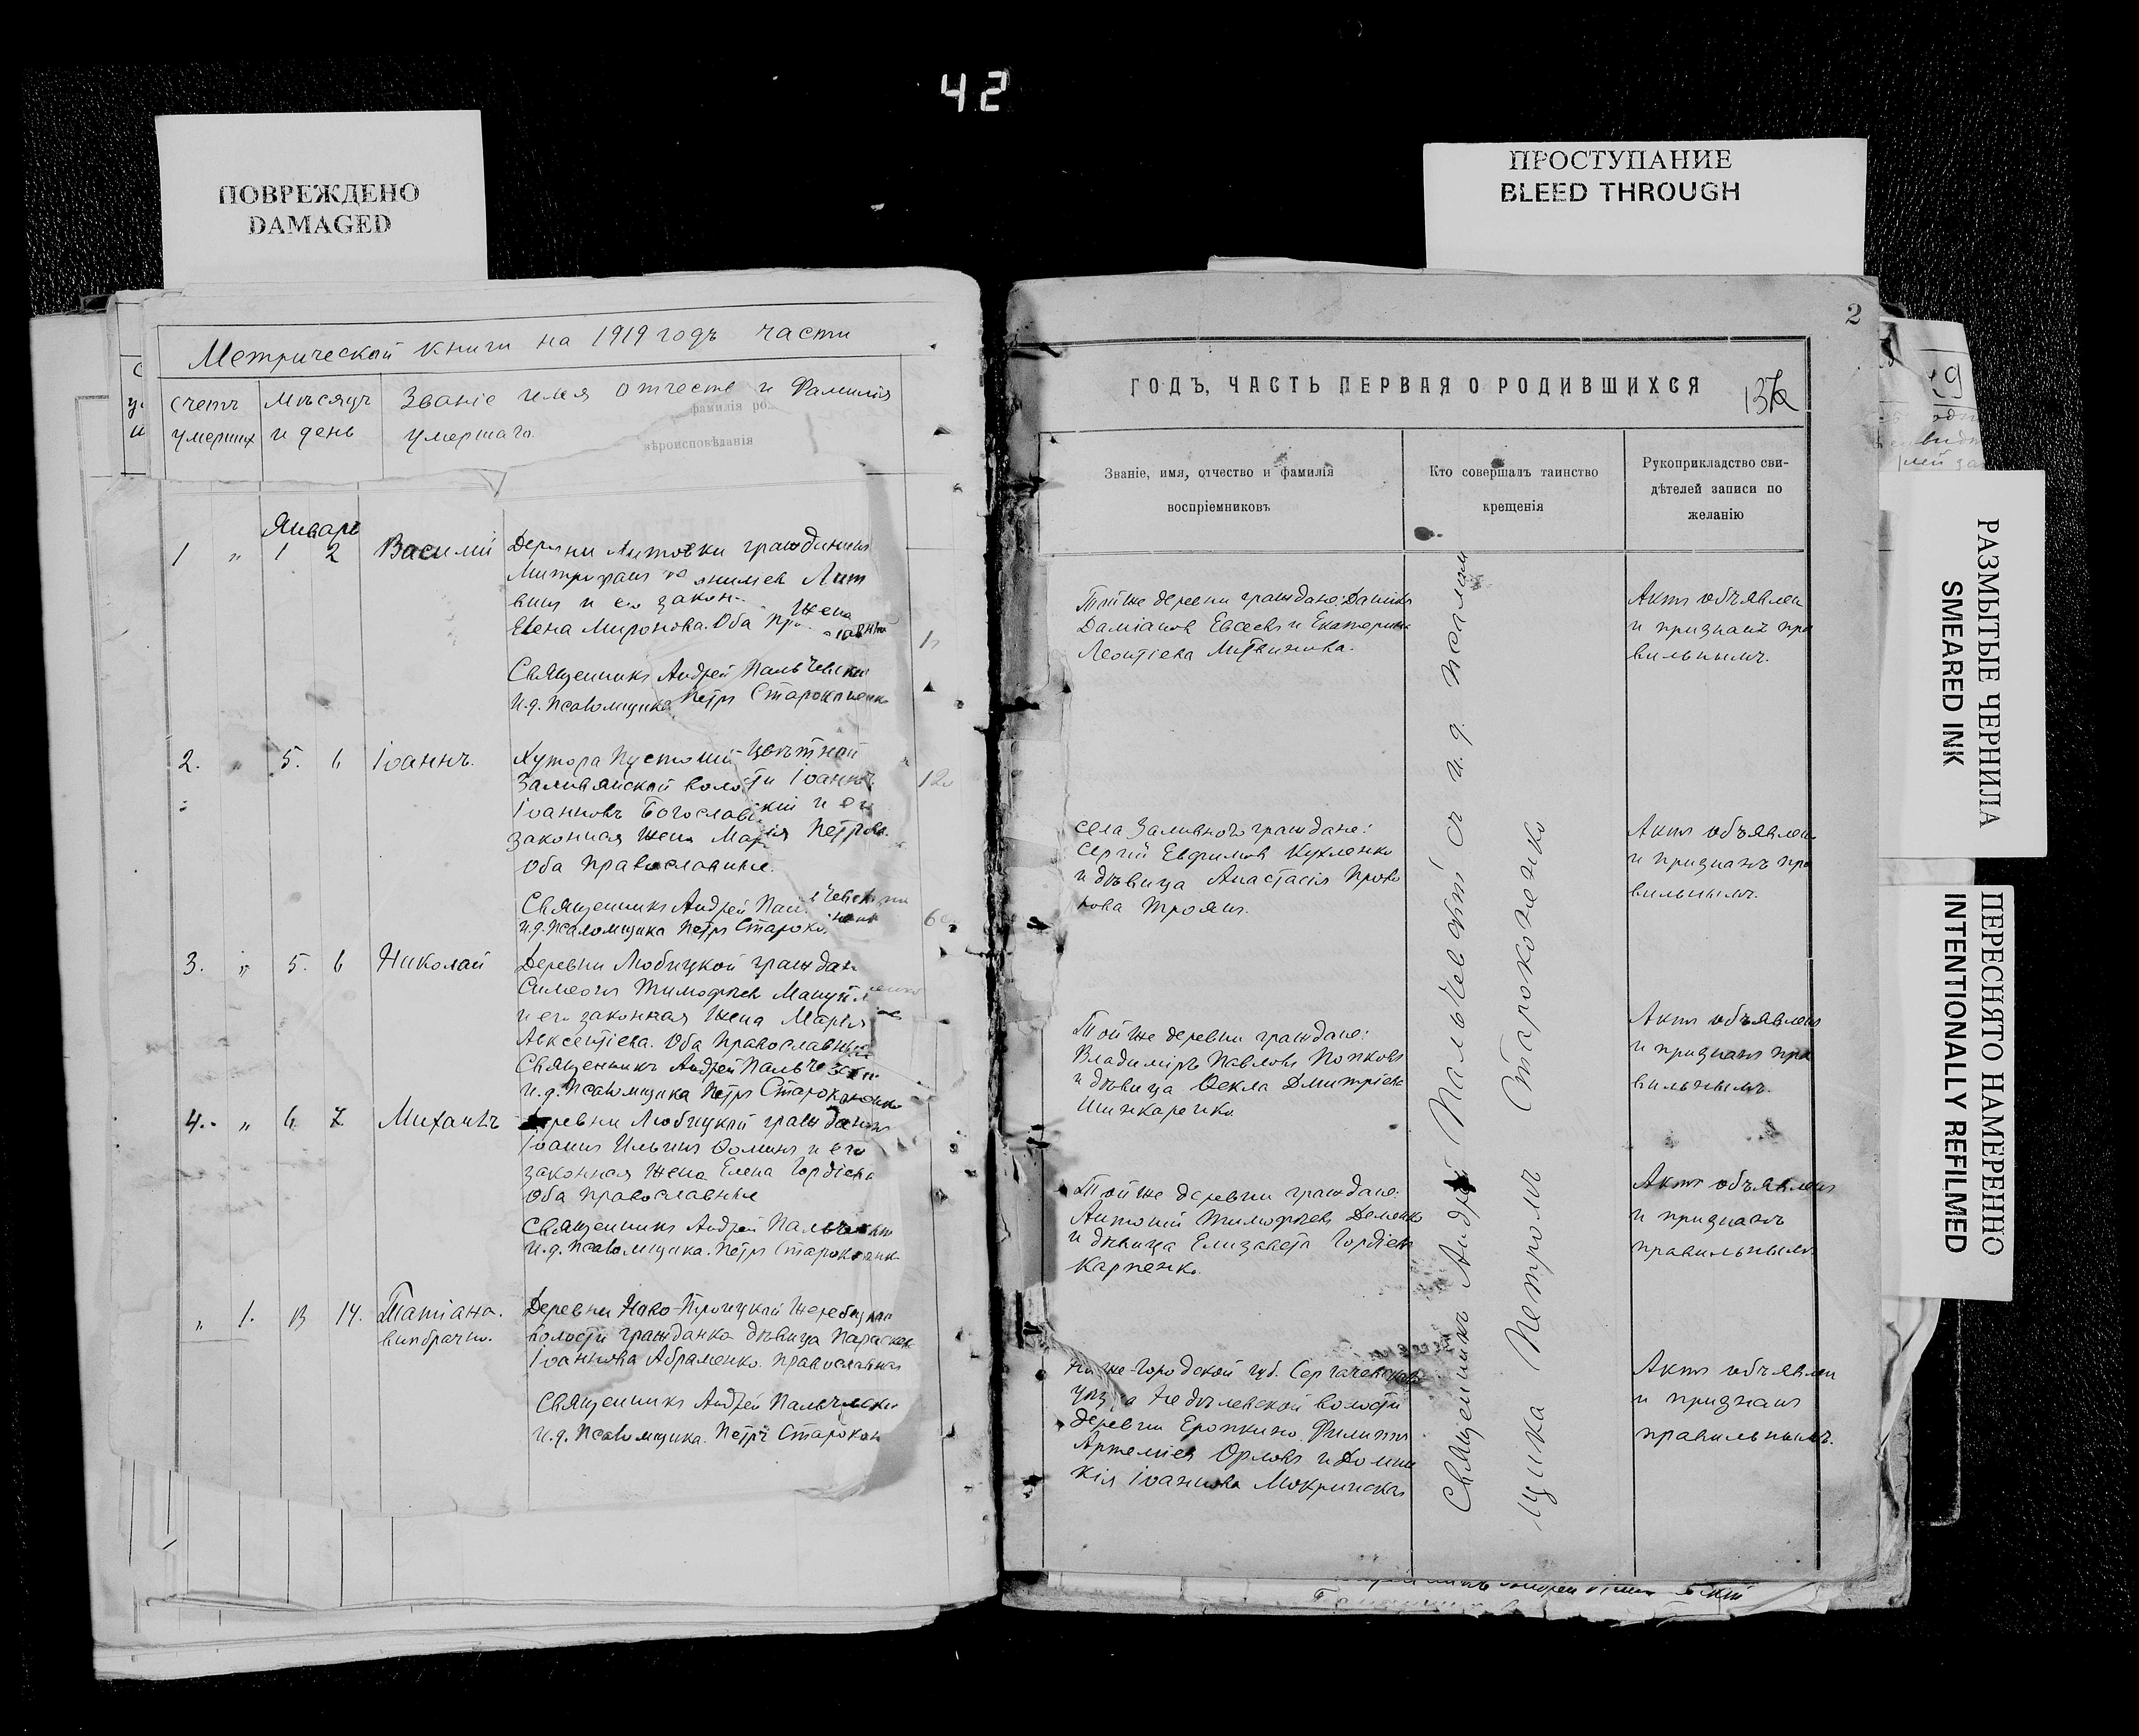 42
ПОВРЕЖДЕНО
DAMAGED
ПРОСТУПАНИЕ
BLEED THROUGH
Метрической книги на 1919 годъ части
счетъ умершихъ
Мѣсяцъ и день
Званіе имя отчеств и Фамилія
умершаго.
фамилія ро
вѣроисповѣданія
Январь
1 " 1 2 Василій
Деревни Литовки гражданинъ
Митрофанъ Лит
винъ и его закон. жена
Елена Миронова. Оба
Священникъ Андрей Пальчевскій
И.д. псаломщика Петръ Староконенко
2. " 5. 6 Іоаннъ.
Хутора Пустоши Цвѣтной
Заливянской волости Іоаннъ
Іоанновъ Богославскій и его
законная жена Марія Петрова.
Оба православные.
Священникъ Андрей Пальчевскій
И.д. псаломщика Петръ Староко
3. " 5. 6 Николай
Деревни Любицкой граждан
Симеонъ Тимофѣевъ Мануйленко
и его законная жена Марія
Авксентіева. Оба Православные
Священникъ Андрей Пальчевскій
И.д. Псаломщика Петръ Староконенко
4. " 6. 7 Михаилъ
Деревни Любицкой гражданинъ
Іоаннъ Ильинъ Ѳоминъ и его
законная жена Елена Гордіева
Оба православные
Священникъ Андрей Пальчевскій
И.д. псаломщика. Петръ Староконенк
" 1. 13 14. Татіана.
внѣбрачно.
Деревни Ново-Троицкой Жеребцкой
волости гражданка дѣвица Параскев
Іоаннова Абраменко. православная
Священникъ Андрей Пальчевскі
И.д. Псаломщика. Петръ Старокон
2
ГОДЪ, ЧАСТЬ ПЕРВАЯ О РОДИВШИХСЯ
Званіе, имя, отчество и фамилія
воспріемниковъ
Кто совершалъ таинство
крещенія
Рукоприкладство сви-
дѣтелей записи по
желанію
Той же деревни граждане: Даніилъ
Даміановъ Евсеевъ и Екатерина
Леонтіева Литвинова.
Актъ объявлен
и признанъ пра
вильнымъ.
села Заливного граждане:
Сергій Евфимовъ Кухленко
и дѣвица Анастасія Проко
пова Троянъ.
Актъ объявлен
и признанъ пра
вильнымъ.
Той же деревни граждане:
Владиміръ Павловъ Попковъ
и дѣвица Ѳекла Дмитріева
Шинкаренко
Актъ объявленъ
и признанъ пра
вильнымъ.
Той же деревни граждане:
Антоній Тимофѣевъ Деменко
и дѣвица Елизавета Гордіева
Карпенко.
Актъ объявленъ
и признанъ
правильнымъ
Ниже-Городской губ. Сергачевскаго
деревни Еропкино. Филиппъ
Артеміевъ Орловъ и Домни
кія Іоаннова Мокринская
Актъ объявлен
и признанъ
правильнымъ.
Священникъ Андрей Пальчевскій съ и.д. псалом
щика Петромъ Староконенко
РАЗМЫТЫЕ ЧЕРНИЛА
SMEARED INK
ПЕРЕСНЯТО НАМЕРЕННО
INTENTIONALLY REFILMED